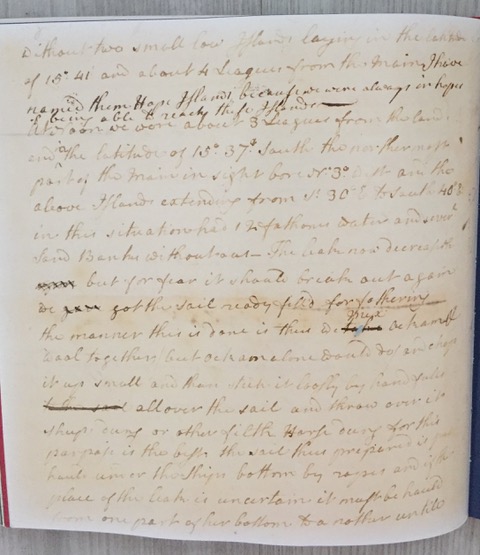 without two small low Islands laying in the Latitude
of 15° 41' and about 4 Leagues from the Main, I have
named them Hope Islands because we were always in hopes
of being able to reach these Islands
At Noon we were about 3 Leagues from the land
and in the latitude of 15° 37' South the northermost
part of the Main in sight bore N° 3° West and the
above Islands extending from S 30° E to South 40° E
in this situation had 12 fathoms water and several
Sand Banks without us - The leak now decreaseth
but for fear it should break out again
we got the Sail ready fill'd for fothering
the manner this is done is thus We Mix Oacham &
Wool together (but Oacham alone would do) and chop
it up small and than stick it loosly by handfulls
all over the sail and throw over it
sheeps dung or other filth Horse dung for this
purpose is the best the sail thus prepared is
hauld under the Ships bottom by ropes and if the
place of the leak is uncertain it must be hauld
from one part of her bottom to a nother untill